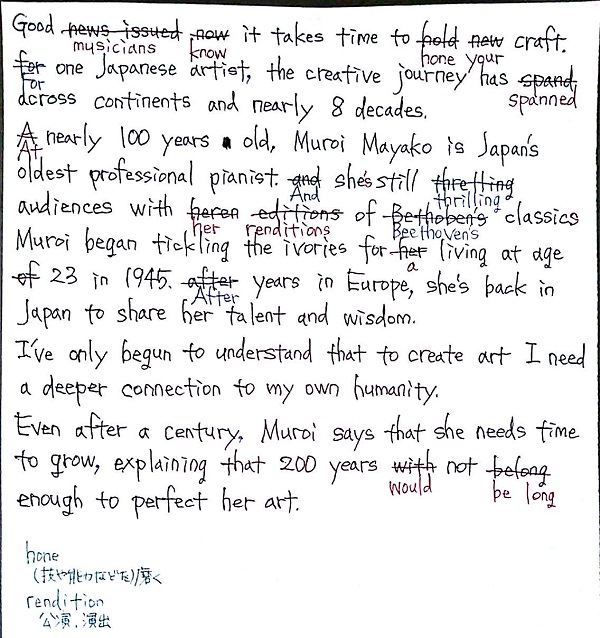 Good news issued now it takes time to hold new craft.
musicians know hone your
for one Japanese artist, the creative journey has spand
For spanned
across continents and nearly 8 decades.
A nearly 100 years old, Muroi Mayako is Japan's
At
oldest professional pianist. and she's still thretting
And thrilling
audiences with heren editions of Bethoben's classics
her renditions Beethoven's
Muroi began tickling the ivories for her living at age
a
of 23 in 1945. after years in Europe, she's back in
After
Japan to share her talent and wisdom.
I've only begun to understand that to create art I need
a deeper connection to my own humanity.
Even after a century, Muroi says that she needs time
to grow, explaining that 200 years with not belong
would be long
enough to perfect her art.
hone
(技や能力などを)磨く
rendition
公演、演出